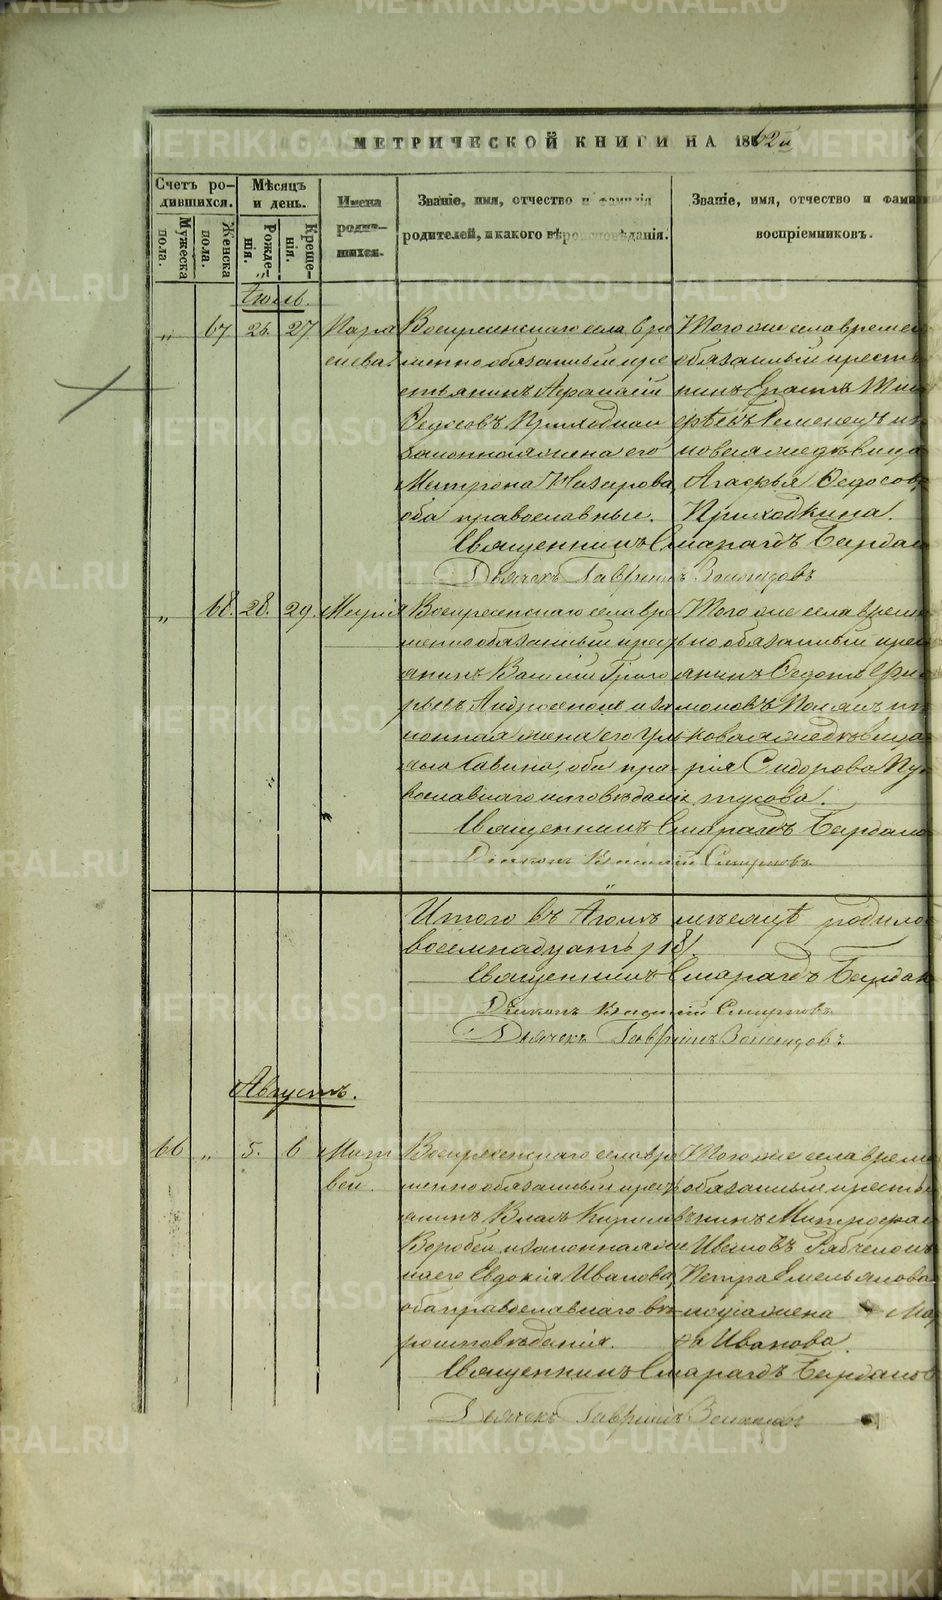 МЕТРИЧЕСКОЙ КНИГИ НА 1862й
Счетъ ро-
дившихся.
Мужеска пола.
Женска пола.
Мѣсяцъ
и день.
Рожде-
нія.
Креще-
нія.
Имена
родив-
шихся.
Званіе, имя, отчество и фамилія
родителей, и какого вѣроисповѣданія.
Званіе, имя, отчество и фами
воспріемниковъ.
Іюль.
„ 67 26. 27 Пара
скева.
Воскресенскаго села вре
менно обязанный кре
стьянинъ Афанасій
Ѳедосовъ Приходкин
законная жена его
Матрона Назарова,
оба православные.
Того же села времен
обязанный кресть
нинъ Ерастъ Тим
Агафья Ѳедосов
Приходкина.
Священникъ Смарагдъ Бардак
Дьячекъ Гавріилъ
„ 68. 28. 29. Марія
Воскресенскаго села вре
менно обязанный крест
янинъ Василій Григо
рьевъ и за
конная жена его Улья
на Савина, оба пра
вославнаго исповѣданія
Того же села време
но обязанный крес
янинъ Ѳедотъ
рія Сидорова
Священникъ Смарагдъ Бардако
Діаконъ Смирновъ
Итого въ Іюлѣ мѣсяцѣ родилос
восемнадцать /18/
Священникъ Смарагдъ Бардак
Діаконъ Смирновъ
Дьячекъ Гавріилъ
Августъ.
66 „ 5. 6 Мат
вей.
Воскресенскаго села вре
менно обязанный крест
янинъ Власъ Кириловъ
Воробей, и законная же
на его Евдокія Иванова,
оба православнаго вѣ
роисповѣданія.
Того же села време
обязанный кресть
нинъ Митрофан
Ивановъ
Петра Емельянова
жена Мар
ѳа Иванова.
Священникъ Смарагдъ Бардаков
Дьячекъ Гавріилъ
METRIKI.GASO-URAL.RU